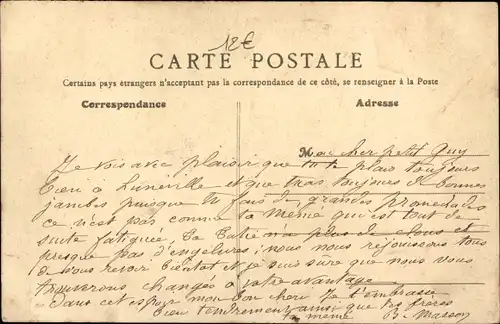 12€
CARTE POSTALE
Certains pays étrangers n'acceptant pas la correspondance de ce côté, se renseigner à la Poste
Correspondance
Adresse
Mon cher petit Guy
Je vois avec plaisir que tu te plais toujours
bien à Lunéville et que tu as toujours de bonnes
jambes puisque tu fais de grandes promenades
ce n'est pas comme ta mémé qui est tout de
suite fatiguée. Ta Tatie n'a plus de clous et
presque pas d'engelures; nous nous rejouissons tous
de vous revoir bientot et je suis sûre que nous vous
trouverons changés à votre avantage
Dans cet espoir mon bon cheri je t'embrasse
bien tendrement ainsi que tes frères
ta mémé B. Masson